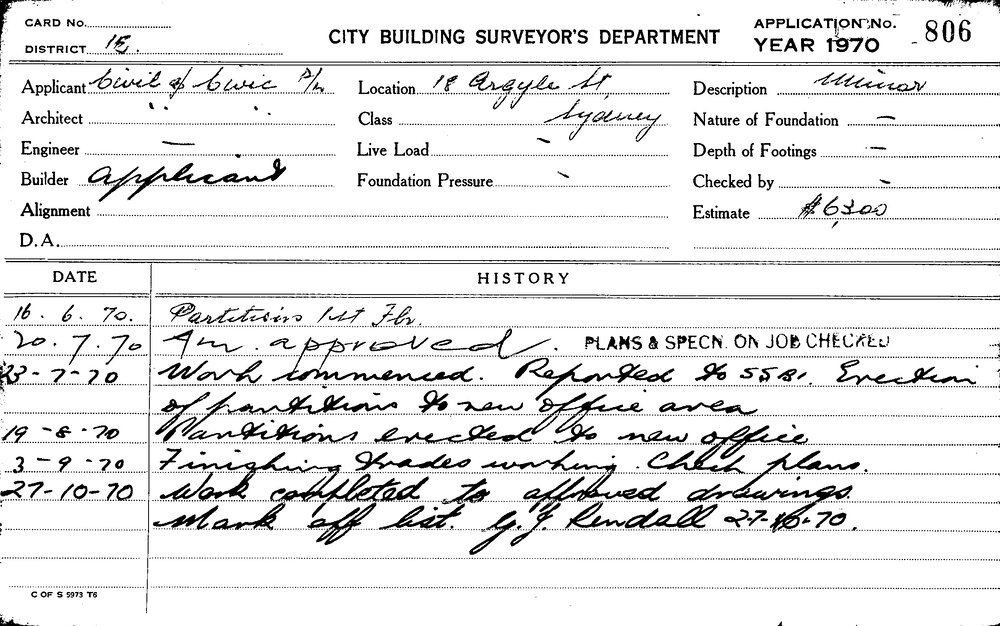 CARD No.
DISTRICT 1E.
CITY BUILDING SURVEYOR'S DEPARTMENT
APPLICATION No. 806
YEAR 1970
Applicant Civil & Civic P/L
Location 18 Argyle St,
Description Minor
Architect " "
Class Sydney
Nature of Foundation —
Engineer —
Live Load –
Depth of Footings —
Builder applicant
Foundation Pressure -
Checked by -
Alignment
Estimate $6,300
D.A.
DATE HISTORY
16. 6. 70. Partitions 1st Flr.
20. 7. 70 Am. approved. PLANS & SPECN. ON JOB CHECKED
23-7-70 Work commenced. Reported to SSBI. Erection
of partitions to new office area
19-8-70 Partitions erected to new office
3-9-70 Finishing trades working. Check plans.
27-10-70 Work completed to approved drawings.
Mark off list. G.J Rendall 27-10-70.
C OF S 5973 T6